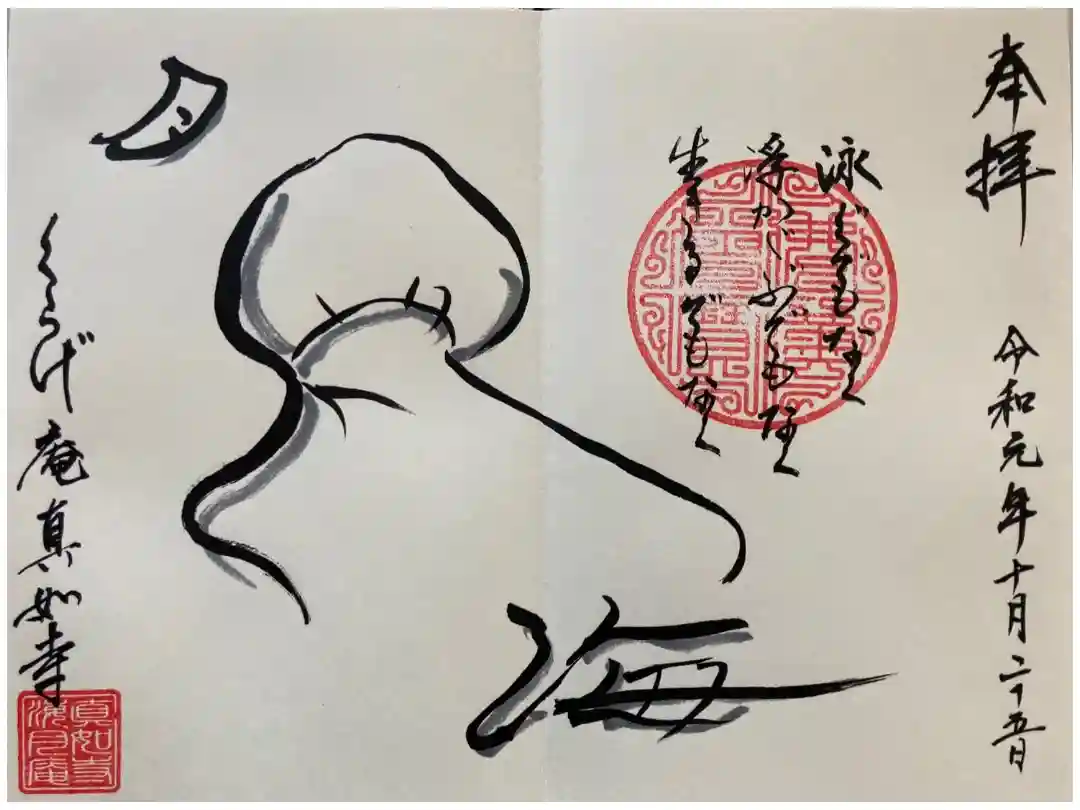 奉拝
令和元年十月二十五日
泳ぐでもなく
浮かぶでもなく
生きるでもなく
海
月
くらげ庵真如寺
真如寺
海月庵